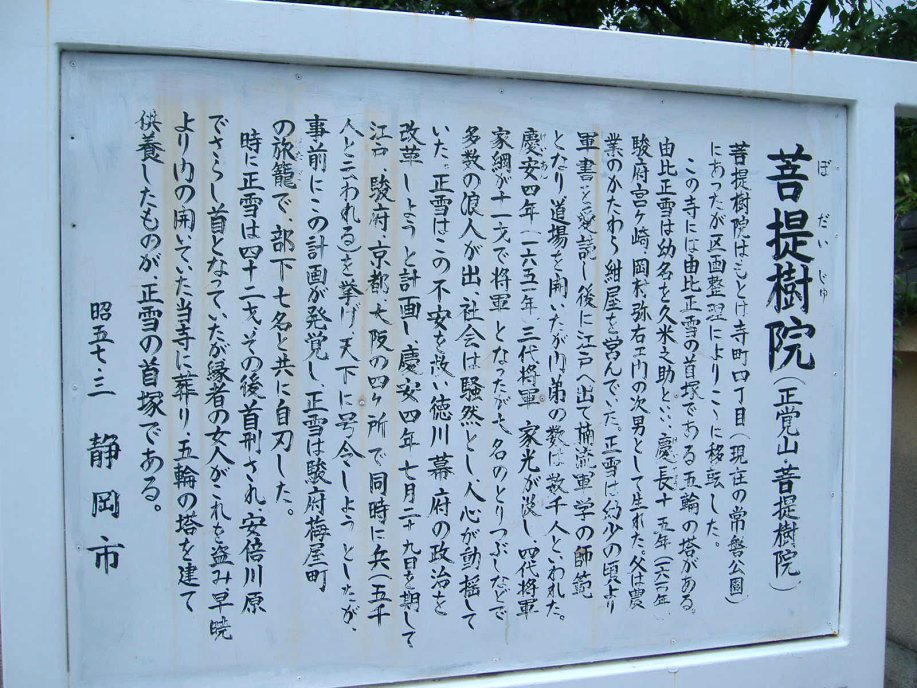 ぼだいじゅ
菩提樹院(正覚山菩提樹院)
菩提樹院はもとけ寺町四丁目(現在の常磐公園)
にあったが区画整理によりここに移転した。
この寺には由比正雪の首塚である五輪の塔がある。
由比正雪は幼名を久米之助といい、慶長十五年(一六一〇年)
駿府宮ヶ崎岡村弥右エ門の次男として生れた。父は農
業のかたわら紺屋を営んでいた。正雪は幼少の頃より
軍書を愛読し後に江戸へ出て楠流軍学の師範
となり道場を開いたが門弟の数は数千人といわれた。
慶安四年(一六五一年)三代将軍 家光が没し四代将軍
家綱が十一才で将軍となったが大名のとりつぶしなどで
多数の浪人が出、社会は騒然とし人心が動揺して
いた。正雪はこの不安を救い徳川幕府の政治を
改革しようと計画し慶安四年七月二十九日を期して
江戸、駿府、京都、大阪の四ヶ所で同時に兵(五千
人と云われる)を挙げ天下に号令しようとしたが、
事前にこの計画が発覚し、正雪は駿府梅屋町
の旅籠で、部下七名と共に自刃した。
時に正雪は四十二才、その後首刑され、安倍川原
でさらし首となっていたが縁者の女人がこれを盗み、早暁
より門の開いていた当寺に葬り五輪の塔を建て
供養したものが、正雪の首塚である。
昭五七・三 静岡市